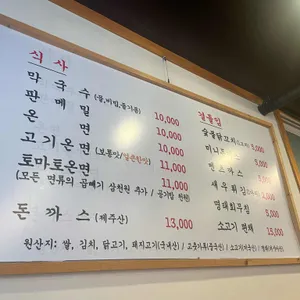 식사
막국수 (물,비빔,들기름) 10,000
판메밀 10,000
온면 10,000
고기온면 (보통맛/얼큰한맛) 11,000
토마토온면 11,000
(모든 면류의 곱빼기 삼천원 추가 / 공기밥 천원)
돈까스 (제주산) 13,000
곁들임
숯불닭꼬치
미니
멘스까스
새우튀김
명태회무침
소고기 편채 15,000
원산지: 쌀, 김치, 닭고기, 돼지고기(국내산) / 고춧가루(중국산) / 소고기(미국산) /